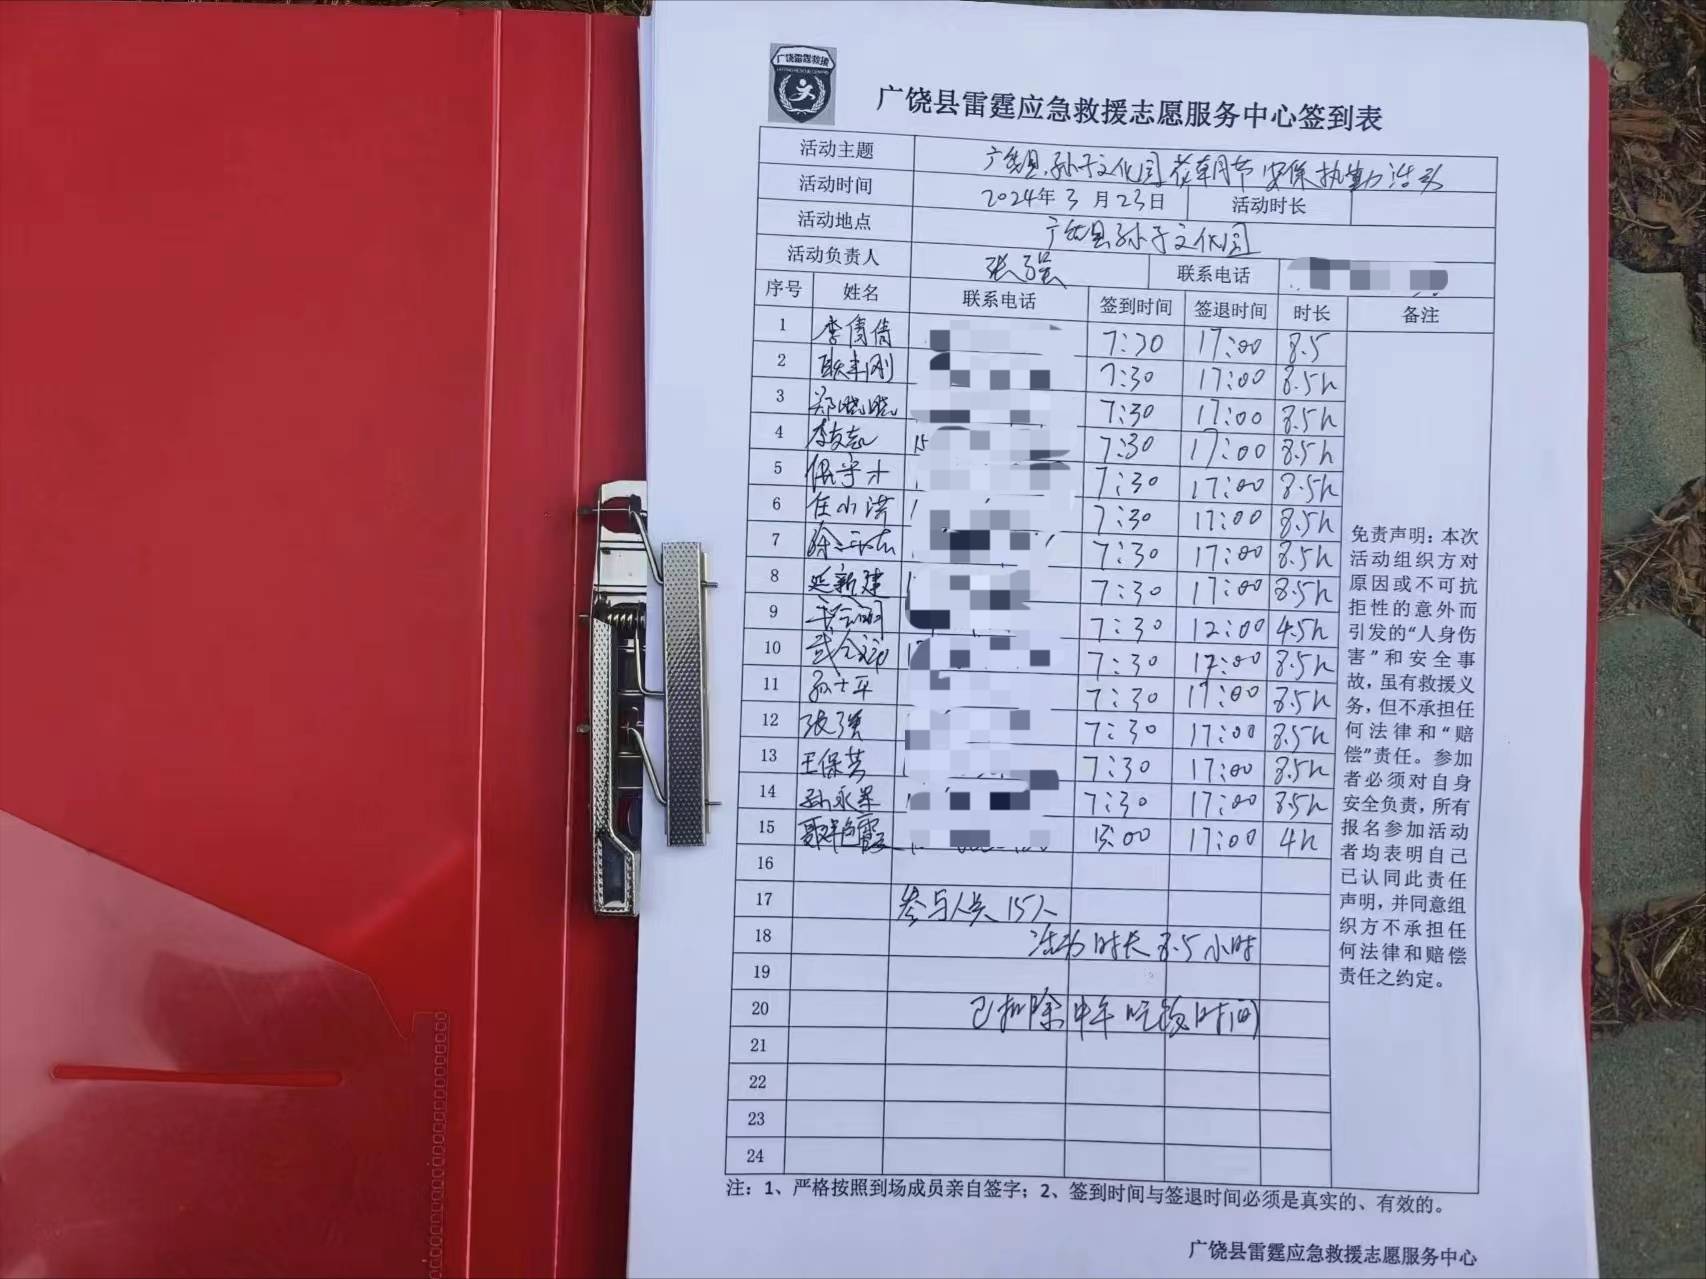 广饶雷霆救援
广饶县雷霆应急救援志愿服务中心签到表
活动主题 广饶县孙子文化园花朝节安保执勤活动
活动时间 2024年3月23日 活动时长
活动地点 广饶县孙子文化园
活动负责人 张强 联系电话
序号 姓名 联系电话 签到时间 签退时间 时长 备注
1 李倩倩 7:30 17:00 8.5
2 7:30 17:00 8.5h
3 郑晓晓 7:30 17:00 8.5h
4 李友志 15 7:30 17:00 8.5h
5 7:30 17:00 8.5h
6 任小洪 7:30 17:00 8.5h
7 7:30 17:00 8.5h
8 延新建 7:30 17:00 8.5h
9 7:30 12:00 4.5h
10 7:30 17:00 8.5h
11 孙士平 7:30 17:00 8.5h
12 张强 7:30 17:00 8.5h
13 王保芸 7:30 17:00 8.5h
14 孙永军 7:30 17:00 8.5h
15 17:00 4h
16
17 参与人员 15人
18 活动时长 8.5小时
19
20 已扣除中午吃饭时间
21
22
23
24
免责声明：本次
活动组织方对
原因或不可抗
拒性的意外而
引发的“人身伤
害”和安全事
故，虽有救援义
务，但不承担任
何法律和“赔
偿”责任。参加
者必须对自身
安全负责，所有
报名参加活动
者均表明自己
已认同此责任
声明，并同意组
织方不承担任
何法律和赔偿
责任之约定。
注：1、严格按照到场成员亲自签字；2、签到时间与签退时间必须是真实的、有效的。
广饶县雷霆应急救援志愿服务中心